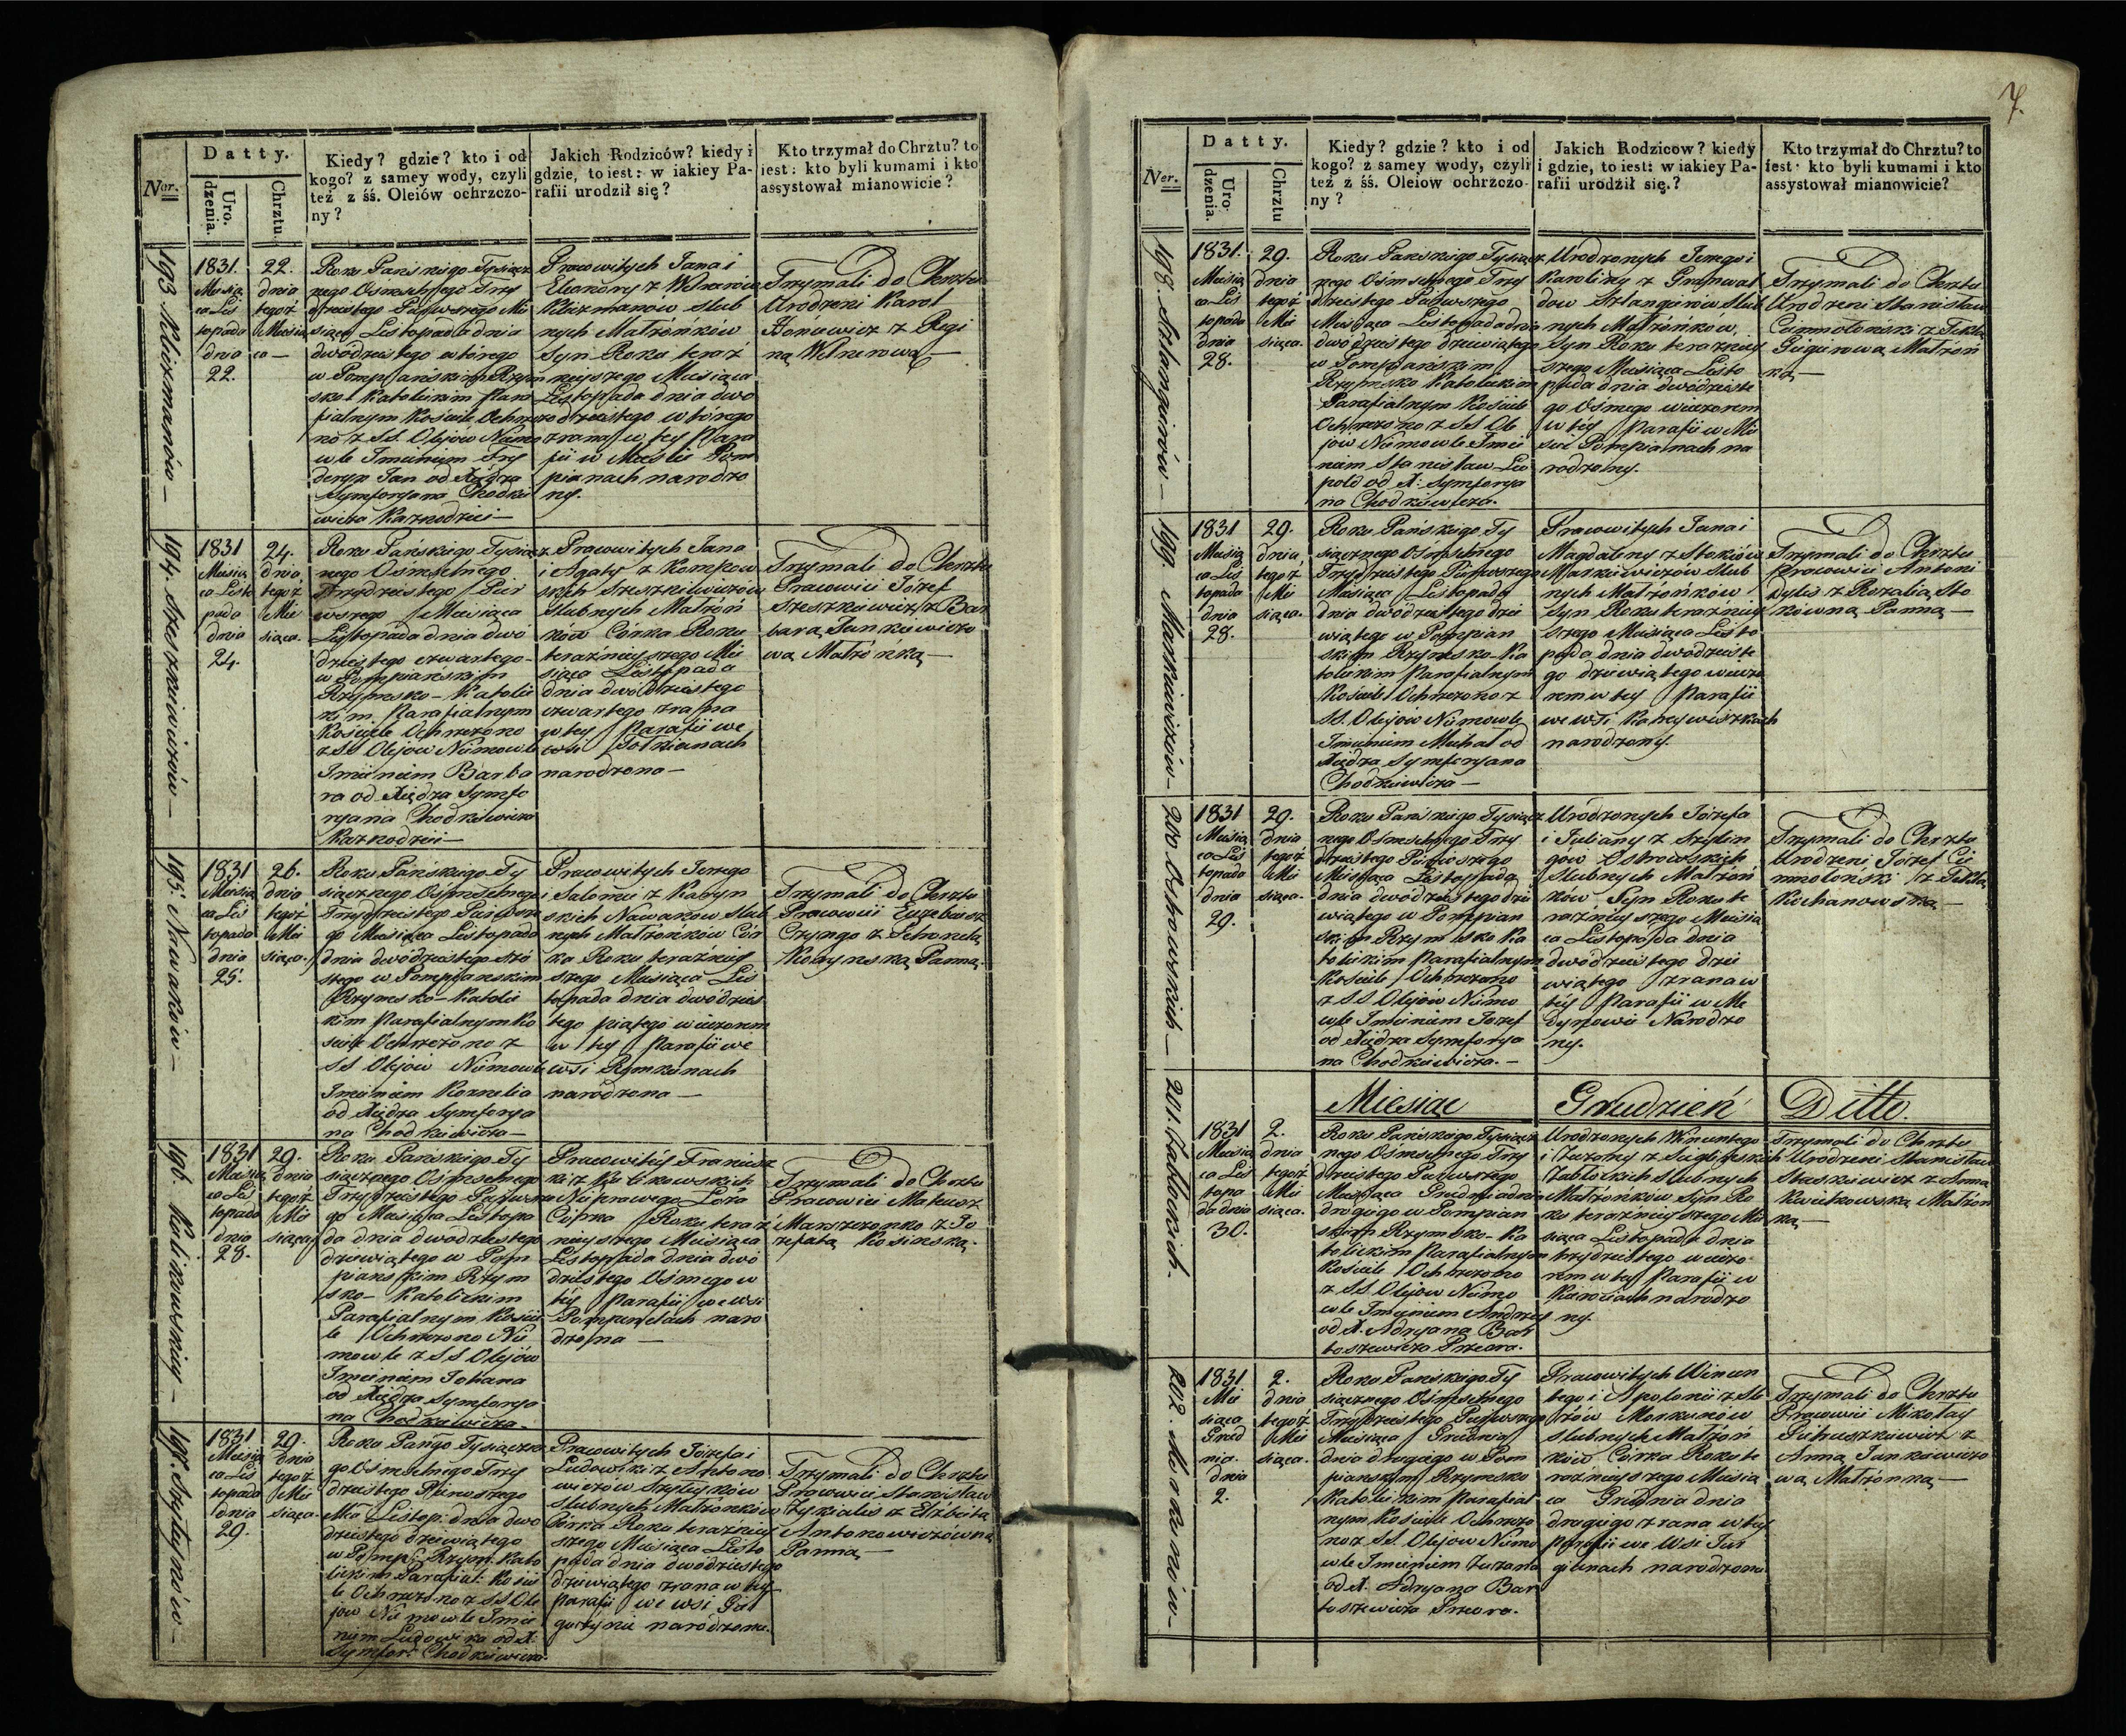 7.
Datty.
Kiedy? gdzie? kto i od
kogo? z samey wody, czyli
też z śś. Oleiów ochrzczo-
ny?
Jakich Rodziców? kiedy i
gdzie, to iest: w iakiey Pa-
rafii urodził się?
Kto trzymał do Chrztu? to
iest: kto byli kumami i kto
assystował mianowicie?
Ner.
Uro.
dzenia.
Chrztu.
193. Kliszmanów —
1831.
Miesią
ca Lis
topada
dnia
22.
22.
dnia
tegoż
Miesią
ca —
Roku Pańskiego Tysiącz
nego Osmsetnego Trzy
dziestego Pierwszego Mie
siąca Listopada dnia
dwódziestego wtórego
w Pompiańskim Rzym
sko Katolickim Para
fialnym Kościele Ochrzczo
no z SS. Olejow Niemo
wle Imieniem Fry
deryk Jan od Xiędza
Symforyana Chodkie
wicza Kaznodziei —
Pracowitych Jana i
Eleanory z Welnerów
Kliszmanów slub
nych Małżonków
Syn Roku teraź
niejszego Miesiąca
Listopada dnia dwó
dziestego wtórego
zrana w tey Para
fii w Mieście Pom
pianach narodzo
ny.
Trzymali do Chrztu
Urodzeni Karol
z Regi
ną Welnerową —
194. Szeszkiewiczów —
1831
Miesią
ca Listo
pada
dnia
24.
24.
dnia
tegoż
Mie
siąca.
Roku Pańskiego Tysiącz
nego Ośmsetnego
Trzydziestego Pier
wszego Miesiąca
Listopada dnia dwó
dziestego czwartego
w Pompiańskim
Rzymsko-Katolic
kim Parafialnym
Kościele Ochrzczono
z SS Olejow Niemowle
Imieniem Barba
ra od Xiędza Symfo
ryana Chodkiewicza
Kaznodziei —
Pracowitych Jana
i Agaty z
Szeszkiewiczów
Slubnych Małżon
ków Córka Roku
teraźnieyszego Mie
siąca Listopada
dnia dwódziestego
czwartego zrana
w tey Parafii we
wsi
narodzona —
Trzymali do Chrztu
Pracowici Józef
Szeszkiewicz z Bar
barą Jankiewiczo
wą Małżonką —
195. Nawaków —
1831
Miesią
ca Lis
topada
dnia
25.
26.
dnia
tegoż
Mie
siąca.
Roku Pańskiego Ty
siącznego Osmsetnego
Trzydziestego Pierwsze
go Miesiąca Listopada
dnia dwódziestego szó
stego w Pompiańskim
Rzymsko-Katolic
kim Parafialnym Ko
ściele Ochrzczono z
SS Olejów Niemowle
Imieniem Kornelia
od Xiędza Symforya
na Chodkiewicza —
Pracowitych Jerzego
i Salomei z Kabyn
skich Nawaków slub
nych Małżonków Cór
ka Roku teraźniey
szego Miesiąca Lis
topada dnia dwódzies
tego piątego wieczorem
w tey Parafii we
wsi Rymkanach
narodzona —
Trzymali do Chrztu
Pracowici Euzebiusz
Panną.
196. Kulikowskiey —
1831
Miesią
ca Lis
topada
dnia
28.
29.
dnia
tegoż
Mie
siąca
Roku Pańskiego Ty
siącznego Ośmsetnego
Trzydziestego Pierwsze
go Miesiąca Listopa
da dnia dwódziestego
dziewiątego w Pom
piańskim Rzym
sko-Katolickim
Parafialnym Koście
le Ochrzczono Nie
mowle z SS Olejów
Imieniem Johana
od Xiędza Symforya
na Chodkiewicza
Pracowitey Francisz
ki z Kulikowskich
Nieprawego Łoża
Córka Roku teraź
nieyszego Miesiąca
Listopada dnia dwó
dziestego Osmego w
tey Parafii we wsi
naro
dzona —
Trzymali do Chrztu
Pracowici Mateusz
z Jo
zefatą Kosinską.
197. Szyłeyków —
1831
Miesią
ca Lis
topada
dnia
29.
29.
dnia
tegoż
Mie
siąca.
Roku Pańgo Tysiączne
go Osmsetnego Trzy
dziestego Pierwszego
Mca Listop: dnia dwó
dziestego dziewiątego
w Pomp: Rzym: Kato
lickim Parafial: Koście
le Ochrzczono z SS Ole
jow Niemowle Imie
niem Ludowika od X:
Symfor: Chodkiewicza.
Pracowitych Józefa i
Ludowiki z Antono
wiczów Szyłeyków
Slubnych Małżonków
Córka Roku teraźniey
szego Miesiąca Listo
pada dnia dwódziestego
dziewiątego zrana w tey
Parafii we wsi
narodzona.
Trzymali do Chrztu
Pracowici Stanisław
z Elżbietą
Antonowiczówną
Panną —
Datty.
Kiedy? gdzie? kto i od
kogo? z samey wody, czyli
też z śś. Oleiow ochrzczo-
ny?
Jakich Rodzicow? kiedy
i gdzie, to iest: w iakiey Pa-
rafii urodził się.?
Kto trzymał do Chrztu? to
iest: kto byli kumami i kto
assystował mianowicie?
Ner.
Uro.
dzenia.
Chrztu
198. Sztangierów —
1831.
Miesią
ca Lis
topada
dnia
28.
29.
dnia
tegoż
Mie
siąca.
Roku Pańskiego Tysiącz
nego Ośmsetnego Trzy
dziestego Pierwszego
Miesiąca Listopada dnia
dwódziestego dziewiątego
w Pompiańskim
Rzymsko Katolickim
Parafialnym Kościele
Ochrzczono z SS Ole
jów Niemowle Imie
niem Stanisław Leo
pold od X: Symforya
na Chodkiewicza.
Urodzonych Jerzego i
Karoliny z Grynwal
dow Sztangierów Slub
nych Małżonków.
Syn Roku teraźniey
szego Miesiąca Listo
pada dnia dwódzieste
go Osmego wieczorem
w tey Parafii w Mie
ście Pompianach na
rodzony.
Trzymali do Chrztu
Urodzeni Stanisław
Ciermołoński z Teklą
Małżon
ką —
199. Markiewiczów —
1831
Miesią
ca Lis
topada
dnia
28.
29.
dnia
tegoż
Mie
siąca.
Roku Pańskiego Ty
siącznego Osmsetnego
Trzydziestego Pierwszego
Miesiąca Listopada
dnia dwódziestego dzie
wiątego w Pompian
skim Rzymsko-Ka
tolickim Parafialnym
Kościele Ochrzczono z
SS. Olejów Niemowle
Imieniem Michał od
Xiędza Symforyana
Chodkiewicza —
Pracowitych Jana i
Magdaleny z Stoków
Markiewiczów Slub
nych Małżonków
Syn Roku teraźniey
szego Miesiąca Listo
pada dnia dwódzieste
go dziewiątego wieczo
rem w tey Parafii
we wsi
narodzony.
Trzymali do Chrztu
Pracowici Antoni
Dylis z Rozalią Sto
kówną Panną —
200. Ostrowskich —
1831
Miesią
ca Lis
topada
dnia
29.
29.
dnia
tegoż
Mie
siąca.
Roku Pańskiego Tysiącz
nego Osmsetnego Trzy
dziestego Pierwszego
Miesiąca Listopada
dnia dwódziestego dzie
wiątego w Pompian
skim Rzymsko Ka
tolickim Parafialnym
Kościele Ochrzczono
z SS Olejów Niemo
wle Imieniem Jozef
od Xiędza Symforya
na Chodkiewicza. —
Urodzonych Józefa
i Juliany z Szylin
gow Ostrowskich
Slubnych Małżon
ków Syn Roku te
raźnieyszego Miesią
ca Listopada dnia
dwódziestego dzie
wiątego zrana w
tey Parafii w
Narodzo
ny.
Trzymali do Chrztu
Urodzeni Józef Cie
rmołoński z Teklą
Kochanowską —
Miesiąc Grudzień Ditto.
201. Zabłockich.
1831
Miesią
ca Lis
topa
da dnia
30.
2.
dnia
tegoż
Mie
siąca.
Roku Pańskiego Tysiącz
nego Ośmsetnego Trzy
dziestego Pierwszego
Miesiąca Grudnia dnia
drugiego w Pompian
skim Rzymsko-Ka
tolickim Parafialnym
Kościele Ochrzczono
z SS Olejow Niemo
wle Imieniem Andrzey
od X. Adryana Bar
toszewicza Przeora.
Urodzonych Wincentego
i Zuzanny z
Zabłockich slubnych
Małżonków Syn Ro
ku teraźnieyszego Mie
siąca Listopada dnia
trzydziestego wieczo
rem w tey Parafii w
narodzo
ny.
Trzymali do Chrztu
Urodzeni Stanisław
Staskiewicz z Anną
Kwietkowską Małżon
ką —
202. Morkunów —
1831
Mie
siąca
Grud
nia.
dnia
2.
2.
dnia
tegoż
Mie
siąca.
Roku Pańskiego Ty
siącznego Ośmsetnego
Trzydziestego Pierwszego
Miesiąca Grudnia
dnia drugiego w Pom
pianskim Rzymsko
Katolickim Parafial
nym Kościele Ochrzczo
no z SS. Olejow Niemo
wle Imieniem Zuzanna
od X. Adryana Bar
toszewicza Przeora.
Pracowitych Wincen
tego i Apolonii z
Morkunów
slubnych Małżon
ków Córka Roku te
raźnieyszego Miesią
ca Grudnia dnia
drugiego zrana w tey
Parafii we Wsi
narodzona
Trzymali do Chrztu
Pracowici Mikołay
Pietruszkiewicz z
Anną Jankiewiczo
wą Małżonką —